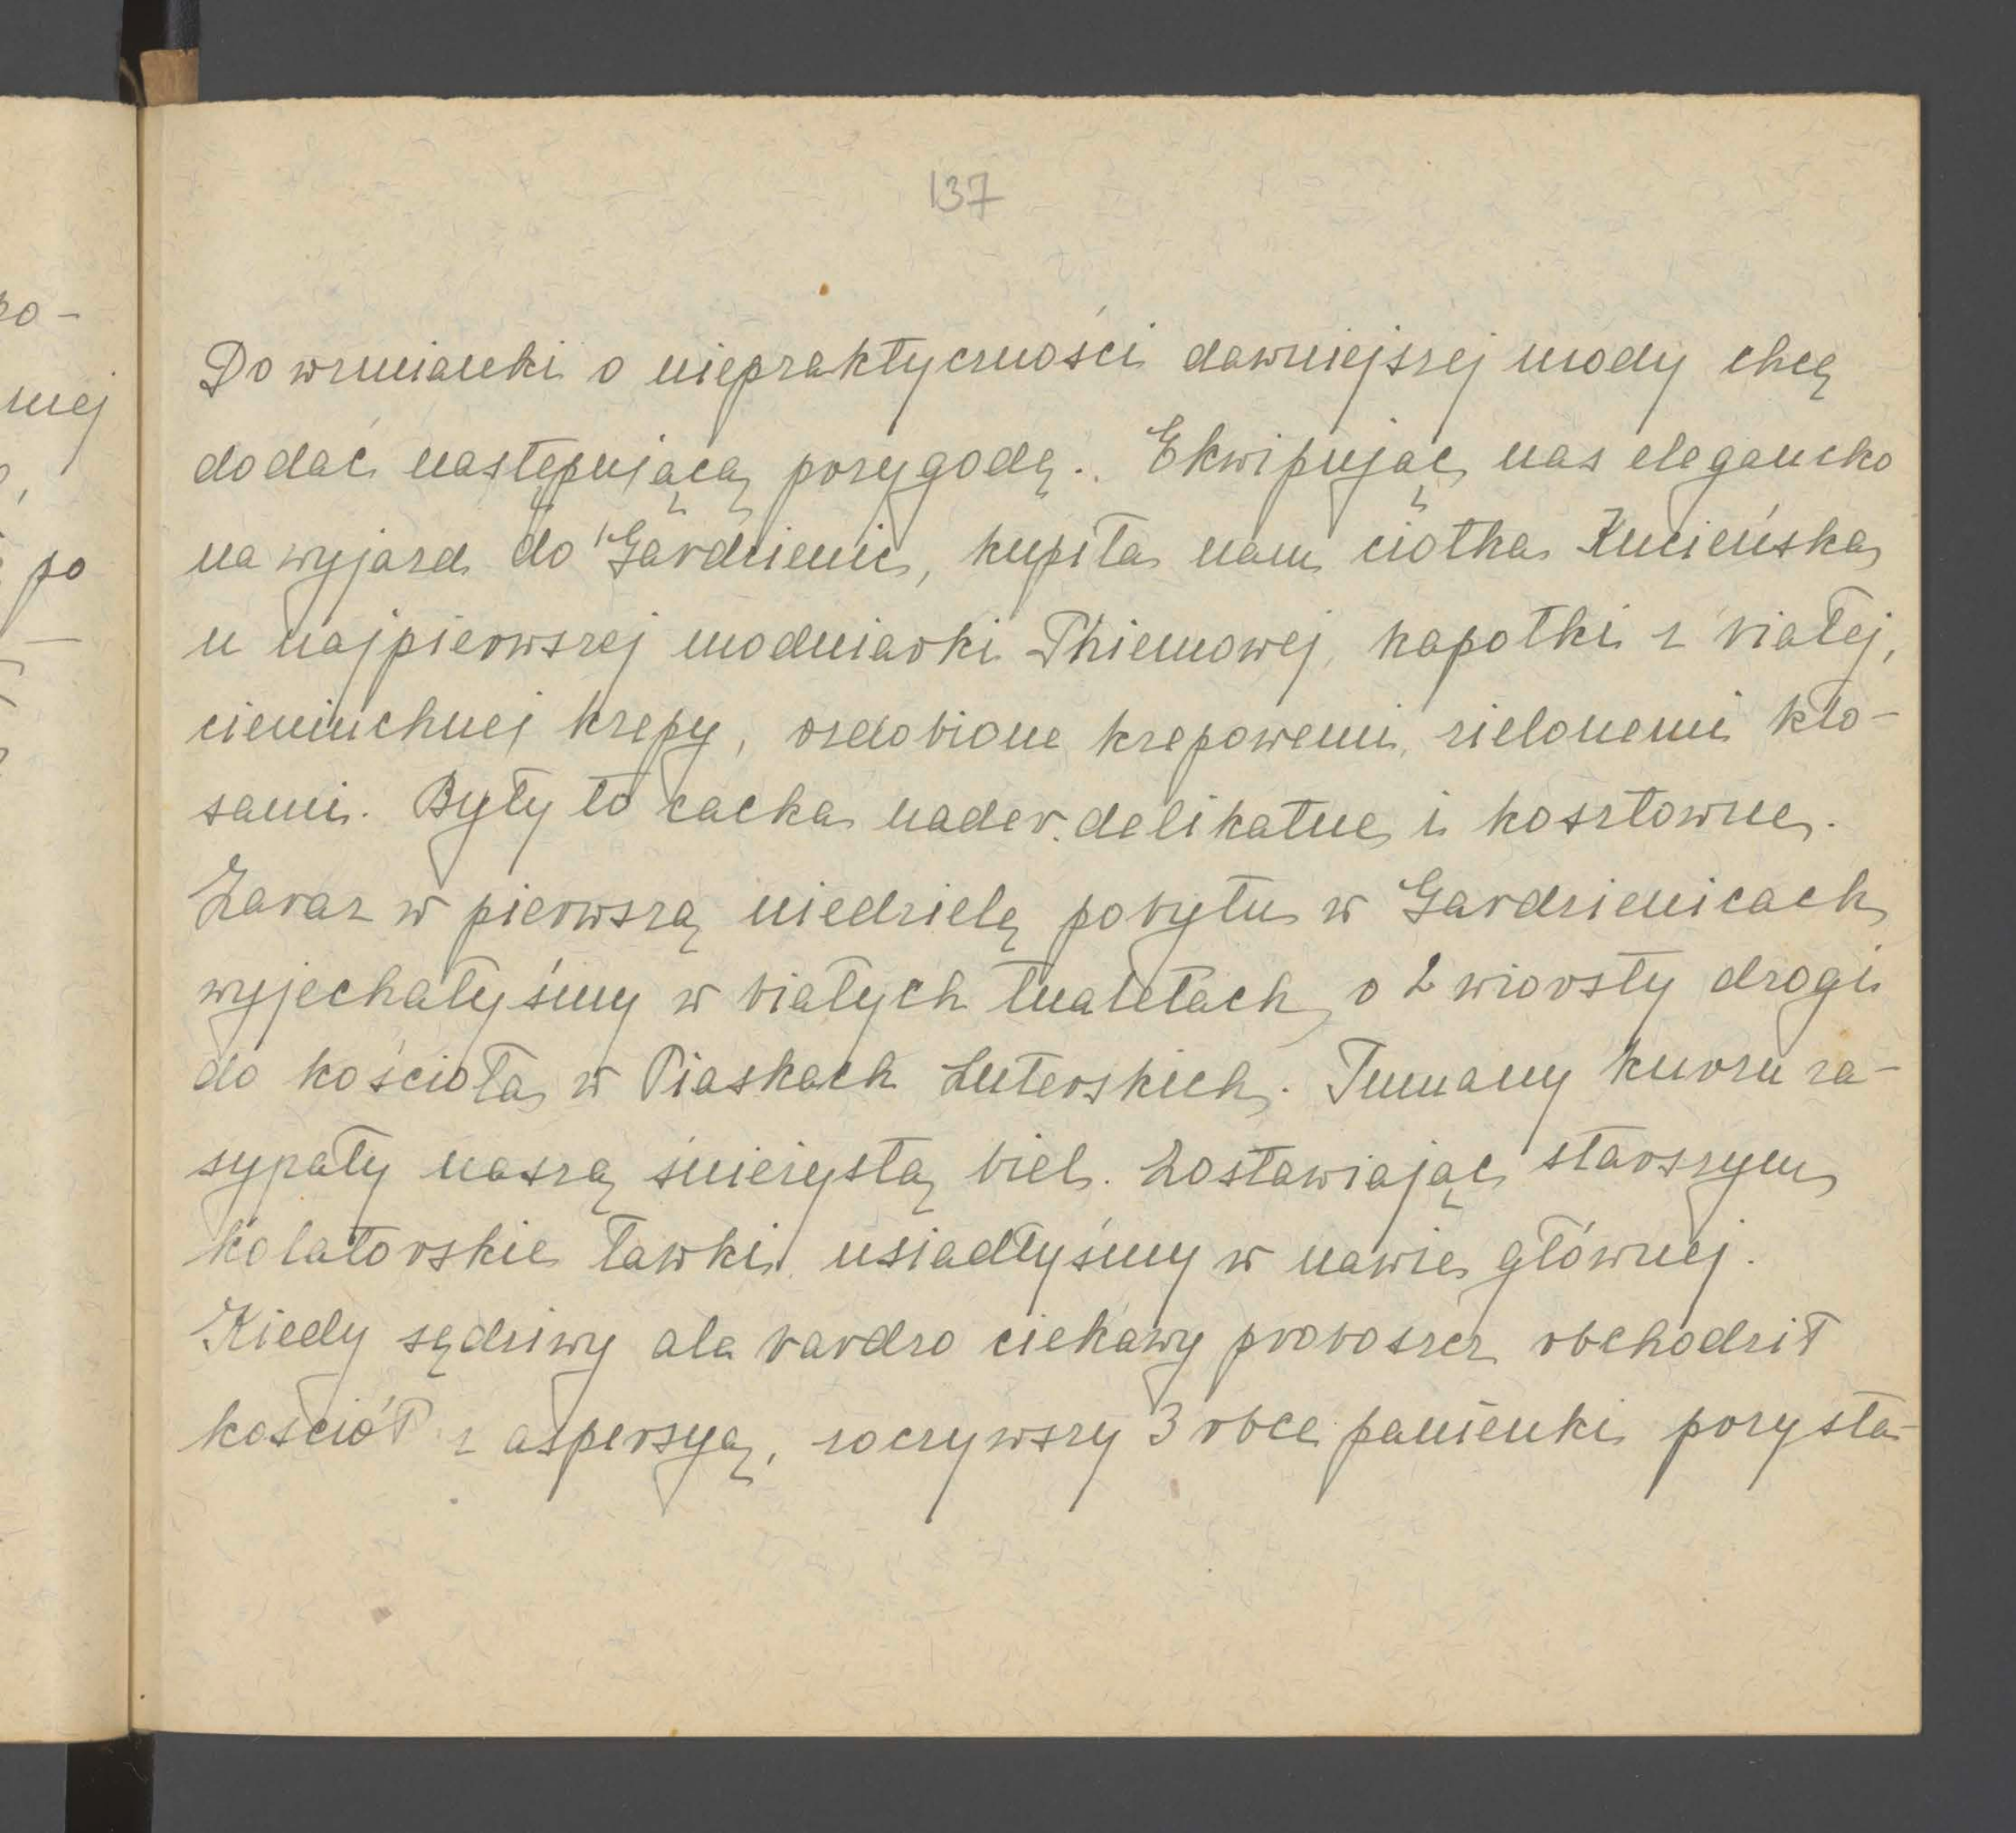 137
Do wzmianki o niepraktyczności dawniejszej mody chcę
dodać następującą przygodę. Ekwipując nas elegancko
na wyjazd do Gardzienic, kupiła nam ciotka Kucieńska
u najpierwszej modniarki Thiemowej, kapotki z białej,
cieniuchnej krepy, ozdobione krepowemi, zielonemi kło-
sami. Były to cacka nader delikatne i kosztowne.
Zaraz w pierwszą niedzielę pobytu w Gardzienicach
wyjechałyśmy w białych tualetach, o 2 wiorsty drogi
do kościoła w Piaskach Luterskich. Tumany kurzu za-
sypały naszą śnieżystą biel. Zostawiając starszym
kolatorskie ławki usiadłyśmy w nawie głównej.
Kiedy sędziwy ale bardzo ciekawy proboszcz obchodził
kościół z aspersyą, zoczywszy 3 obce panienki przysta-
zo-
niej
po